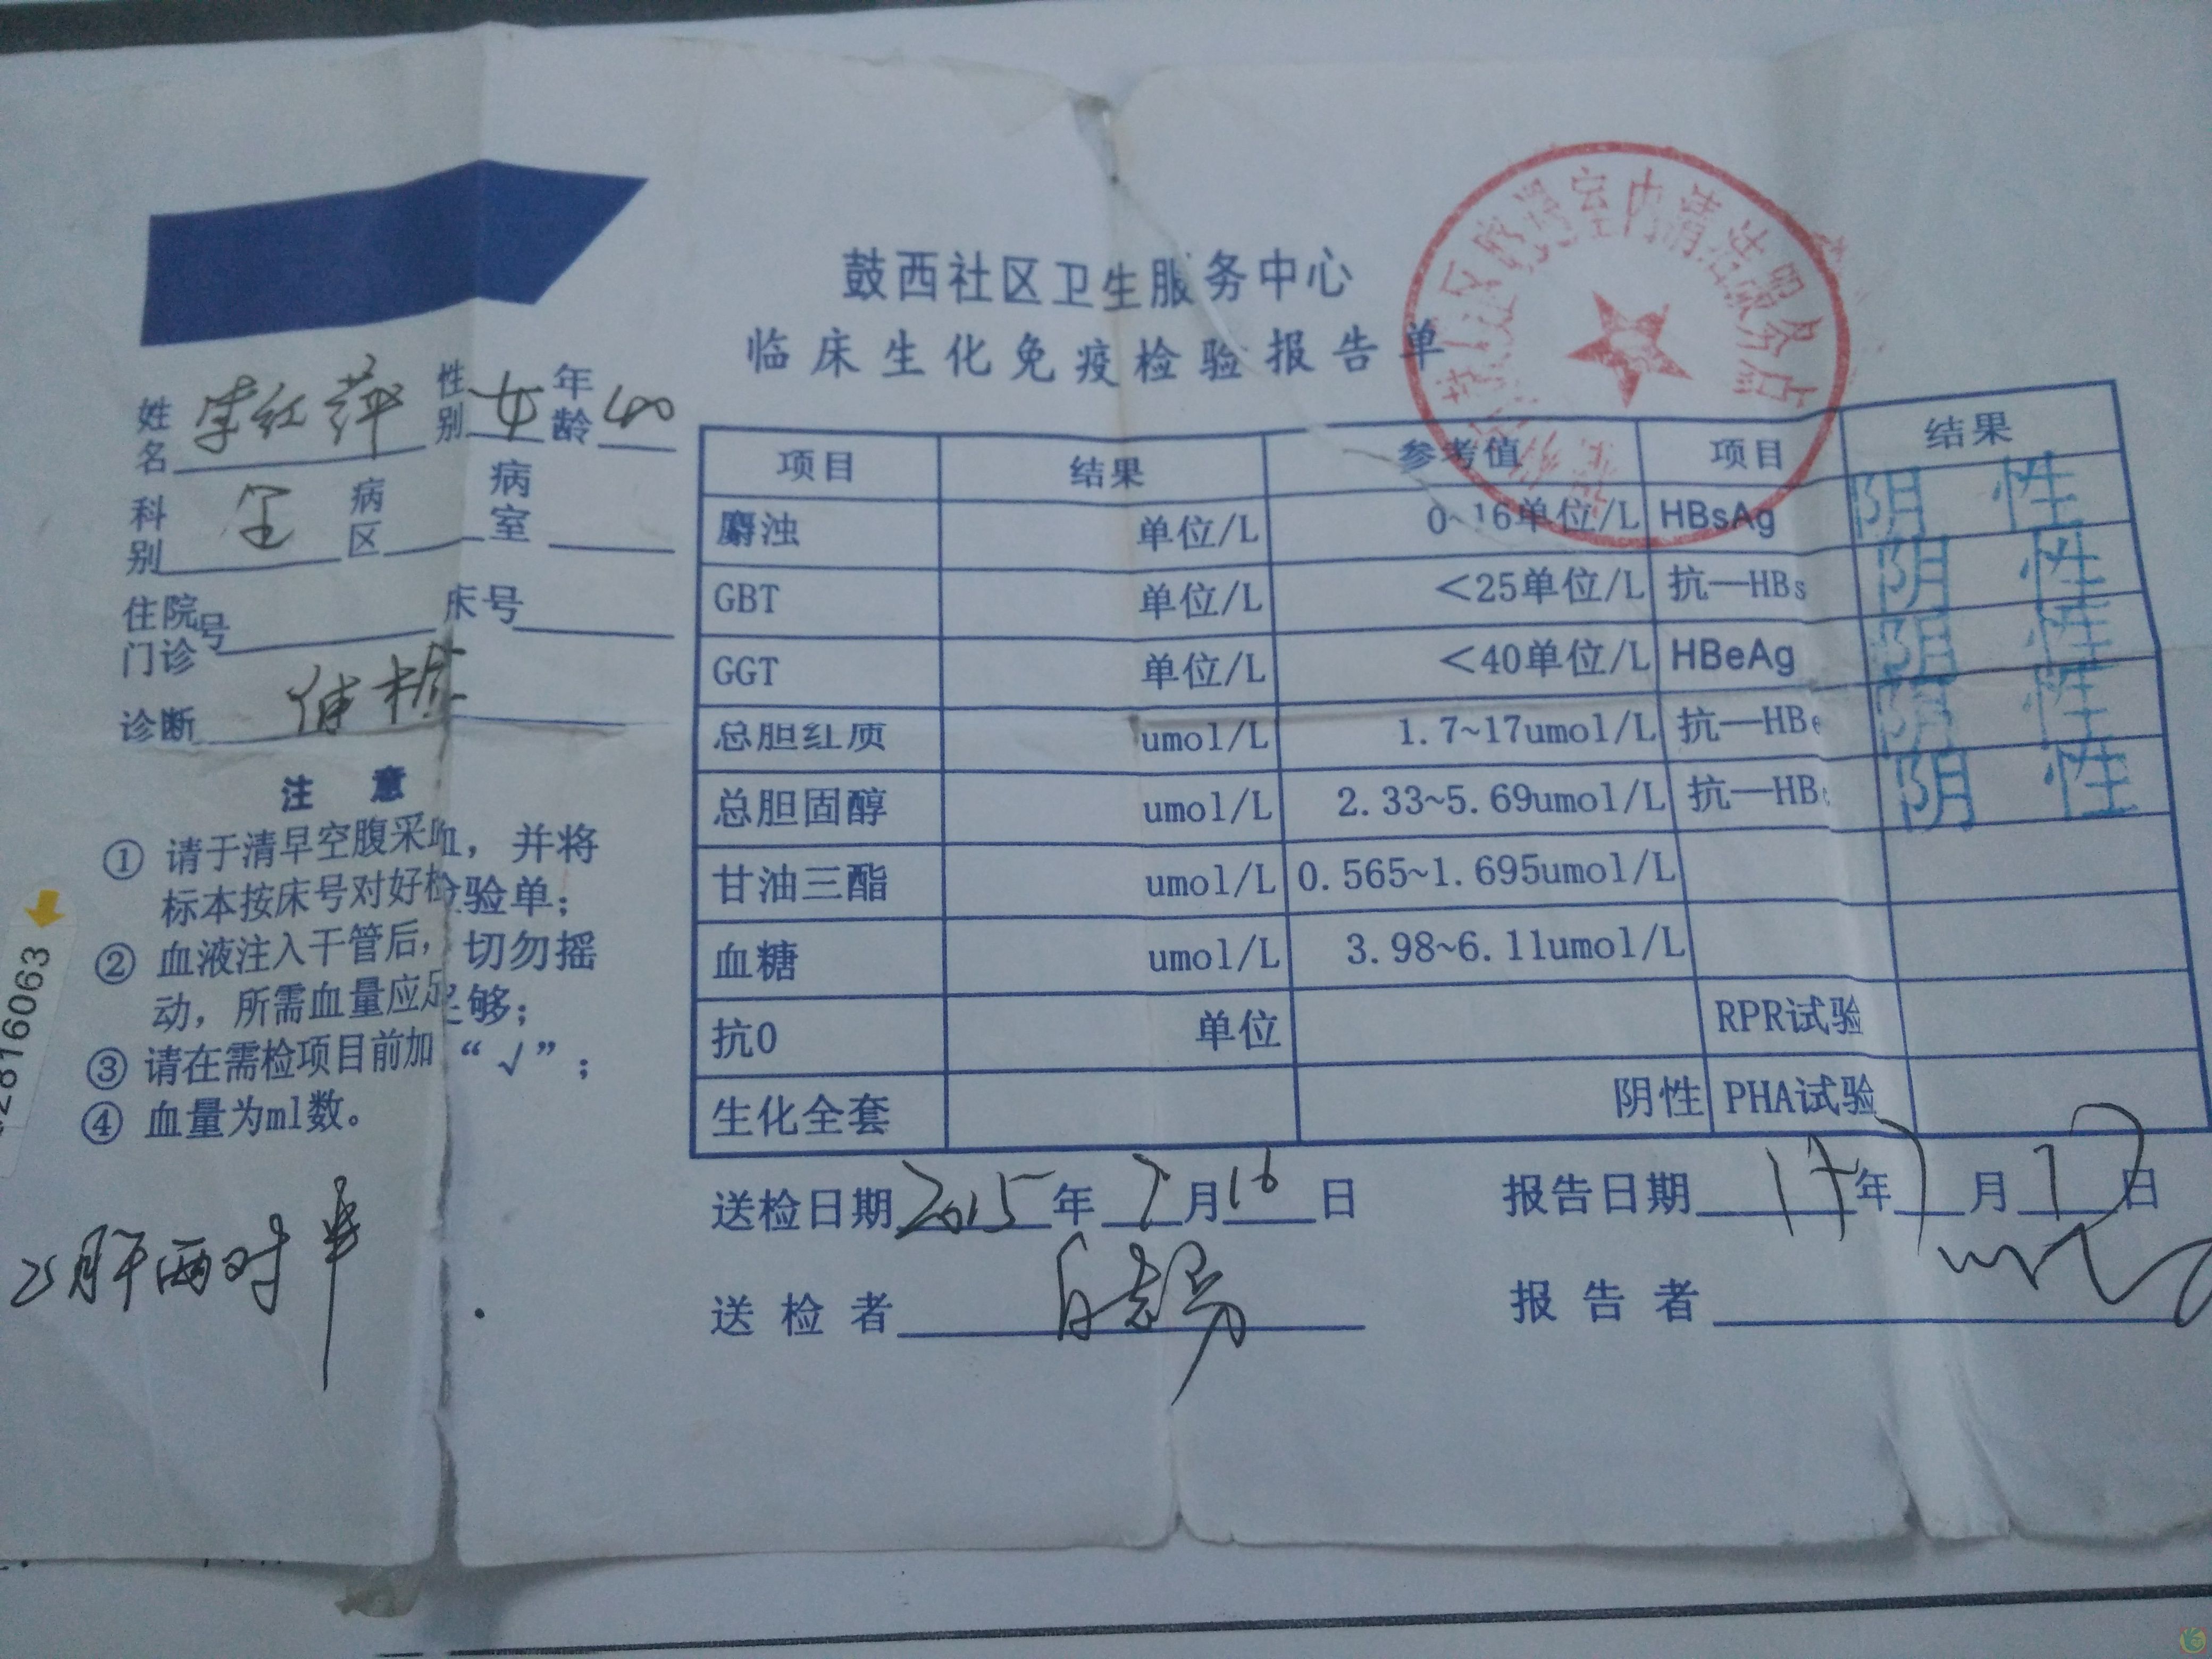 鼓西社区卫生服务中心
临床生化免疫检验报告单
室内清洁服务店
姓名 李红萍 性别 女 年龄 40
科别 全 病区 病室
住院 门诊 号 床号
诊断 体检
注 意
① 请于清早空腹采血，并将
标本按床号对好检验单；
② 血液注入干管后，切勿摇
动，所需血量应足够；
③ 请在需检项目前加“√”；
④ 血量为ml数。
乙肝两对半
2816063
项目 结果 参考值 项目 结果
麝浊 单位/L 0~16单位/L HBsAg 阴 性
GBT 单位/L <25单位/L 抗—HBs 阴 性
GGT 单位/L <40单位/L HBeAg 阴 性
总胆红质 umol/L 1.7~17umol/L 抗—HBe 阴 性
总胆固醇 umol/L 2.33~5.69umol/L 抗—HBc 阴 性
甘油三酯 umol/L 0.565~1.695umol/L
血糖 umol/L 3.98~6.11umol/L
抗0 单位 RPR试验
生化全套 阴性 PHA试验
送检日期 2015 年 7 月 16 日 报告日期 年 7 月 17 日
送 检 者 报 告 者